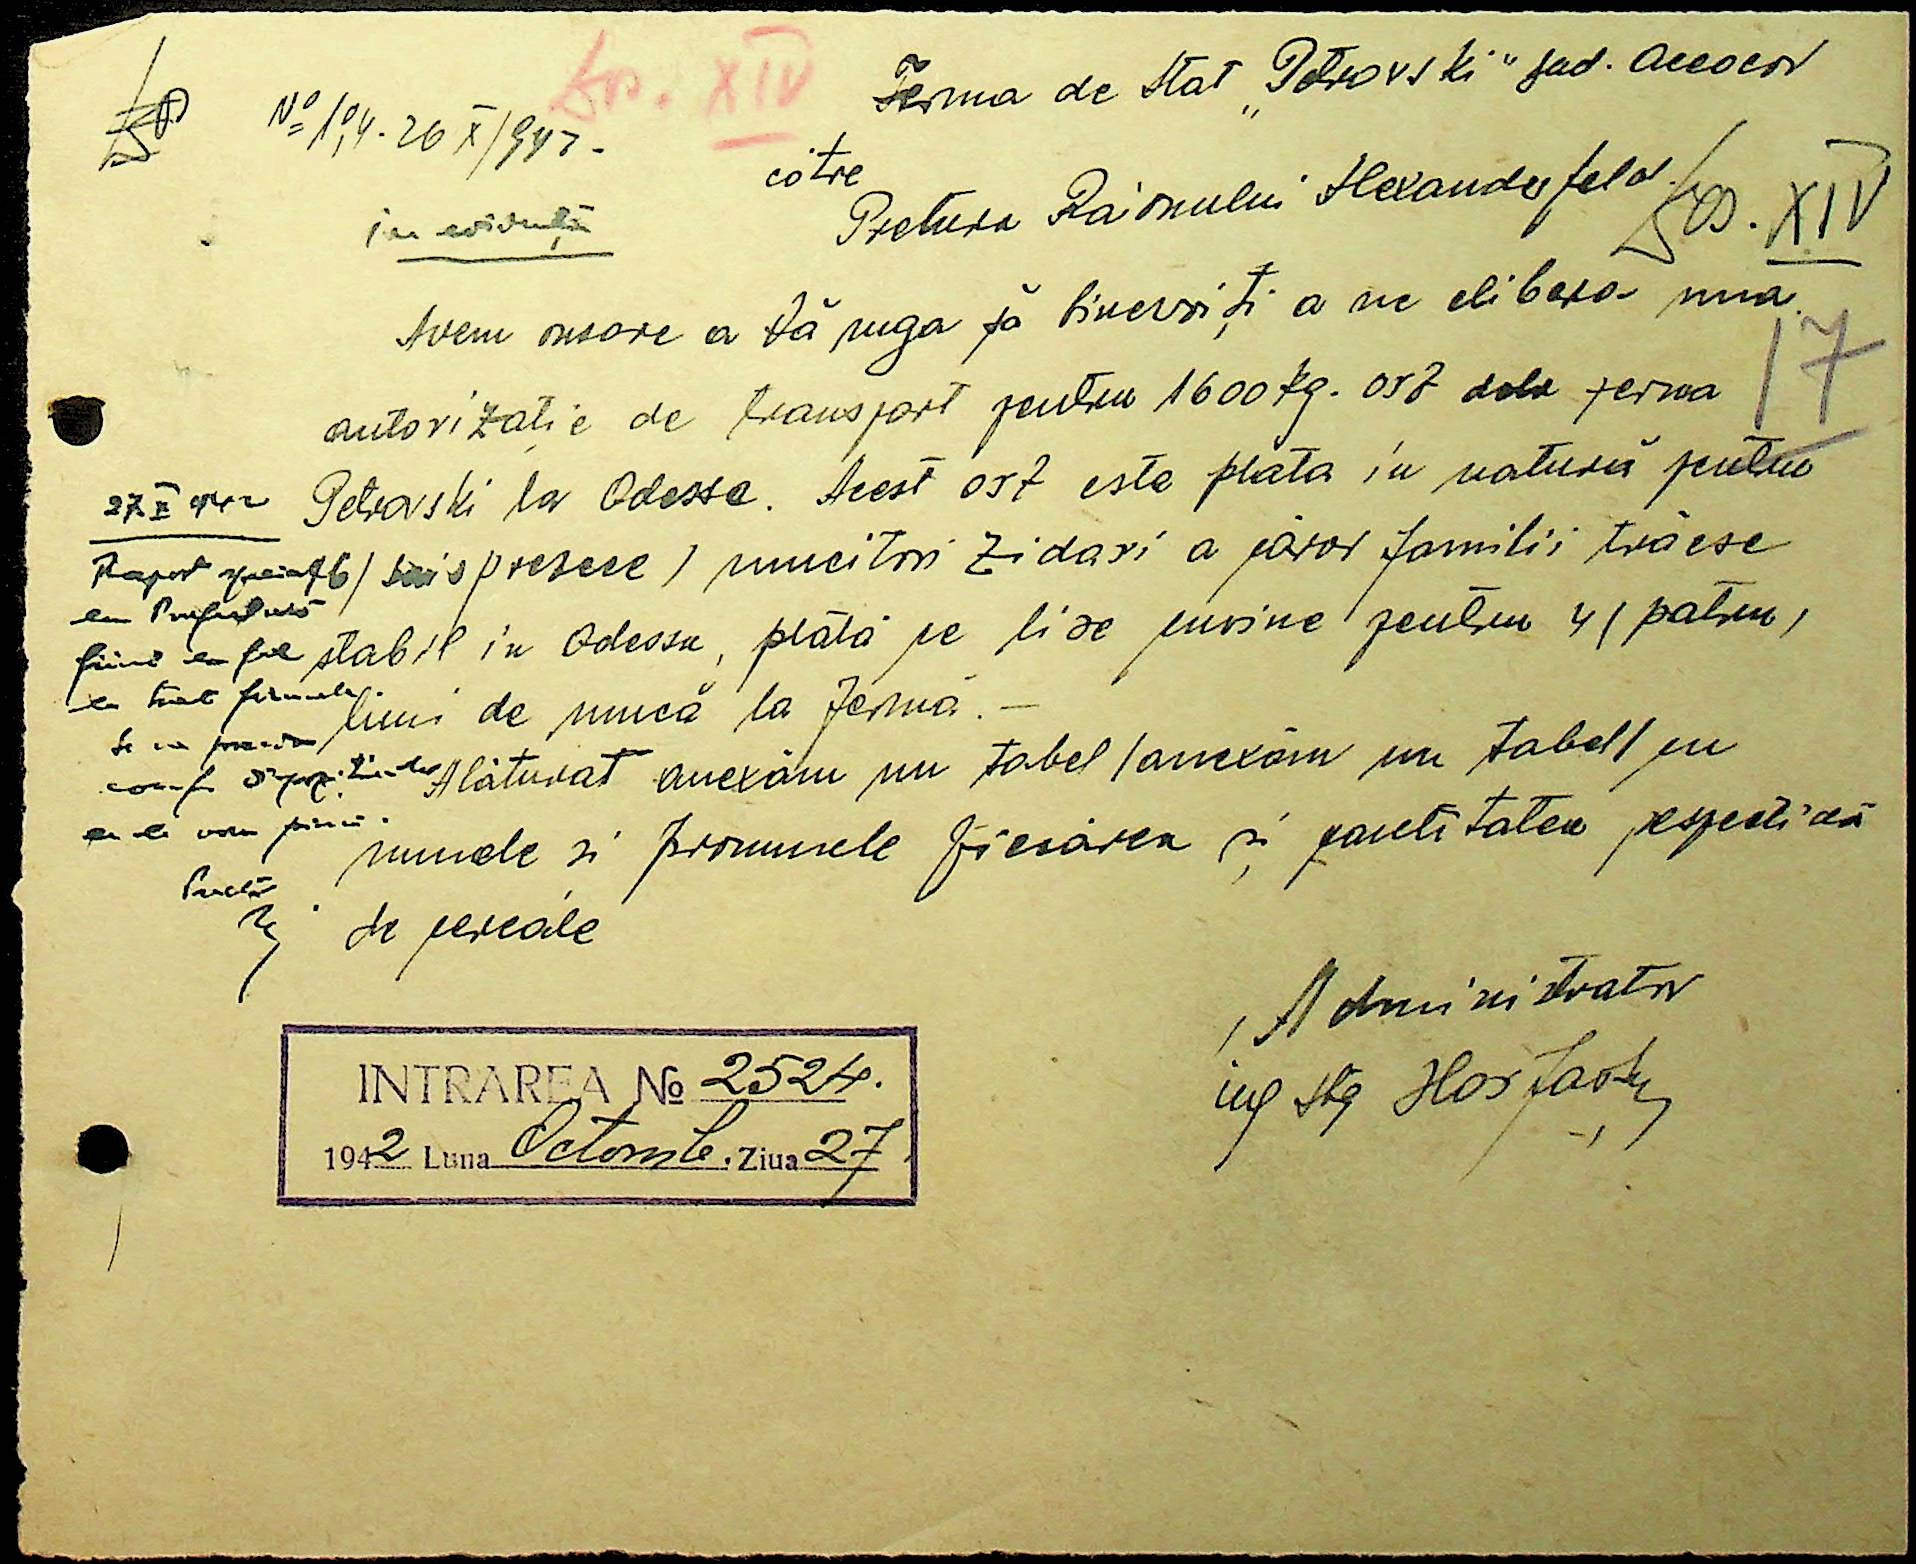 Dos. XIV
Ferma de Stat „Petrovski" jud. Oceacov
No 104. 26 X/942.
către
Pretura Raionului Alexanderfeld.
Dos. XIV
in evidență
Avem onoare a Vă ruga să binevoiți a ne elibera una
17
autorizație de transport pentru 1600 kg. orz dela ferma
Petrovski la Odessa. Acest orz este plata in natură pentru
16/ spresece / muncitori zidari a căror familii trăesc
stabil in Odessa, plată ce li se cuvine pentru 4 ( patru )
luni de muncă la fermă. —
Alăturat anexăm un tabel /anexăm un tabel/ cu
numele si pronumele fiecărea și cantitatea respectivă
de cereale
27 X 942
Raport special
la Prefectură
se va
conf. dispozitiunilor
ce le vom primi.
Pretor
Administrator
ing stg
INTRAREA No 2524.
1942 Luna Octomb. Ziua 27